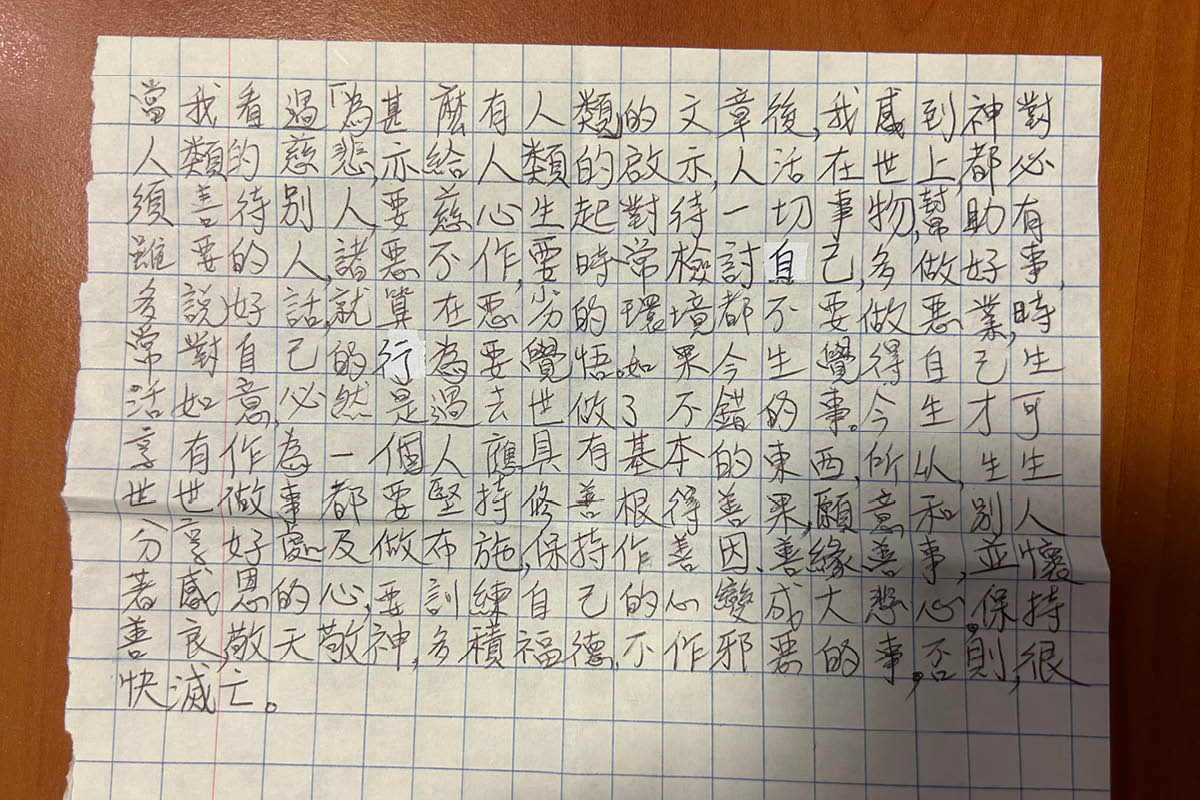 當我看過「為甚麼有人類」的文章後,我感到神對
人類的慈悲,亦給人類的啟示,人活在世上,都必
須善待別人,要慈心生起對待一切事物,幫助有
雖要的人,諸惡不作,要時常檢討自己,多做好事,
多說好話,就算在惡劣的環境都不要做惡業,時
常對自己的行為要覺悟。如果今生覺得自己生
活如意,必然是過去世做了不錯的事。今生才可
享有作為一個人應具有基本的東西,所以,生生
世世做事都要堅持修善根得善果,願意和別人
分享好處及做布施,保持作善因、善緣善事,並懷
著感恩的心,要訓練自己的心變成大悲心。保持
善良,敬天敬神,多積福德,不作邪惡的事。否則,很
快滅亡。